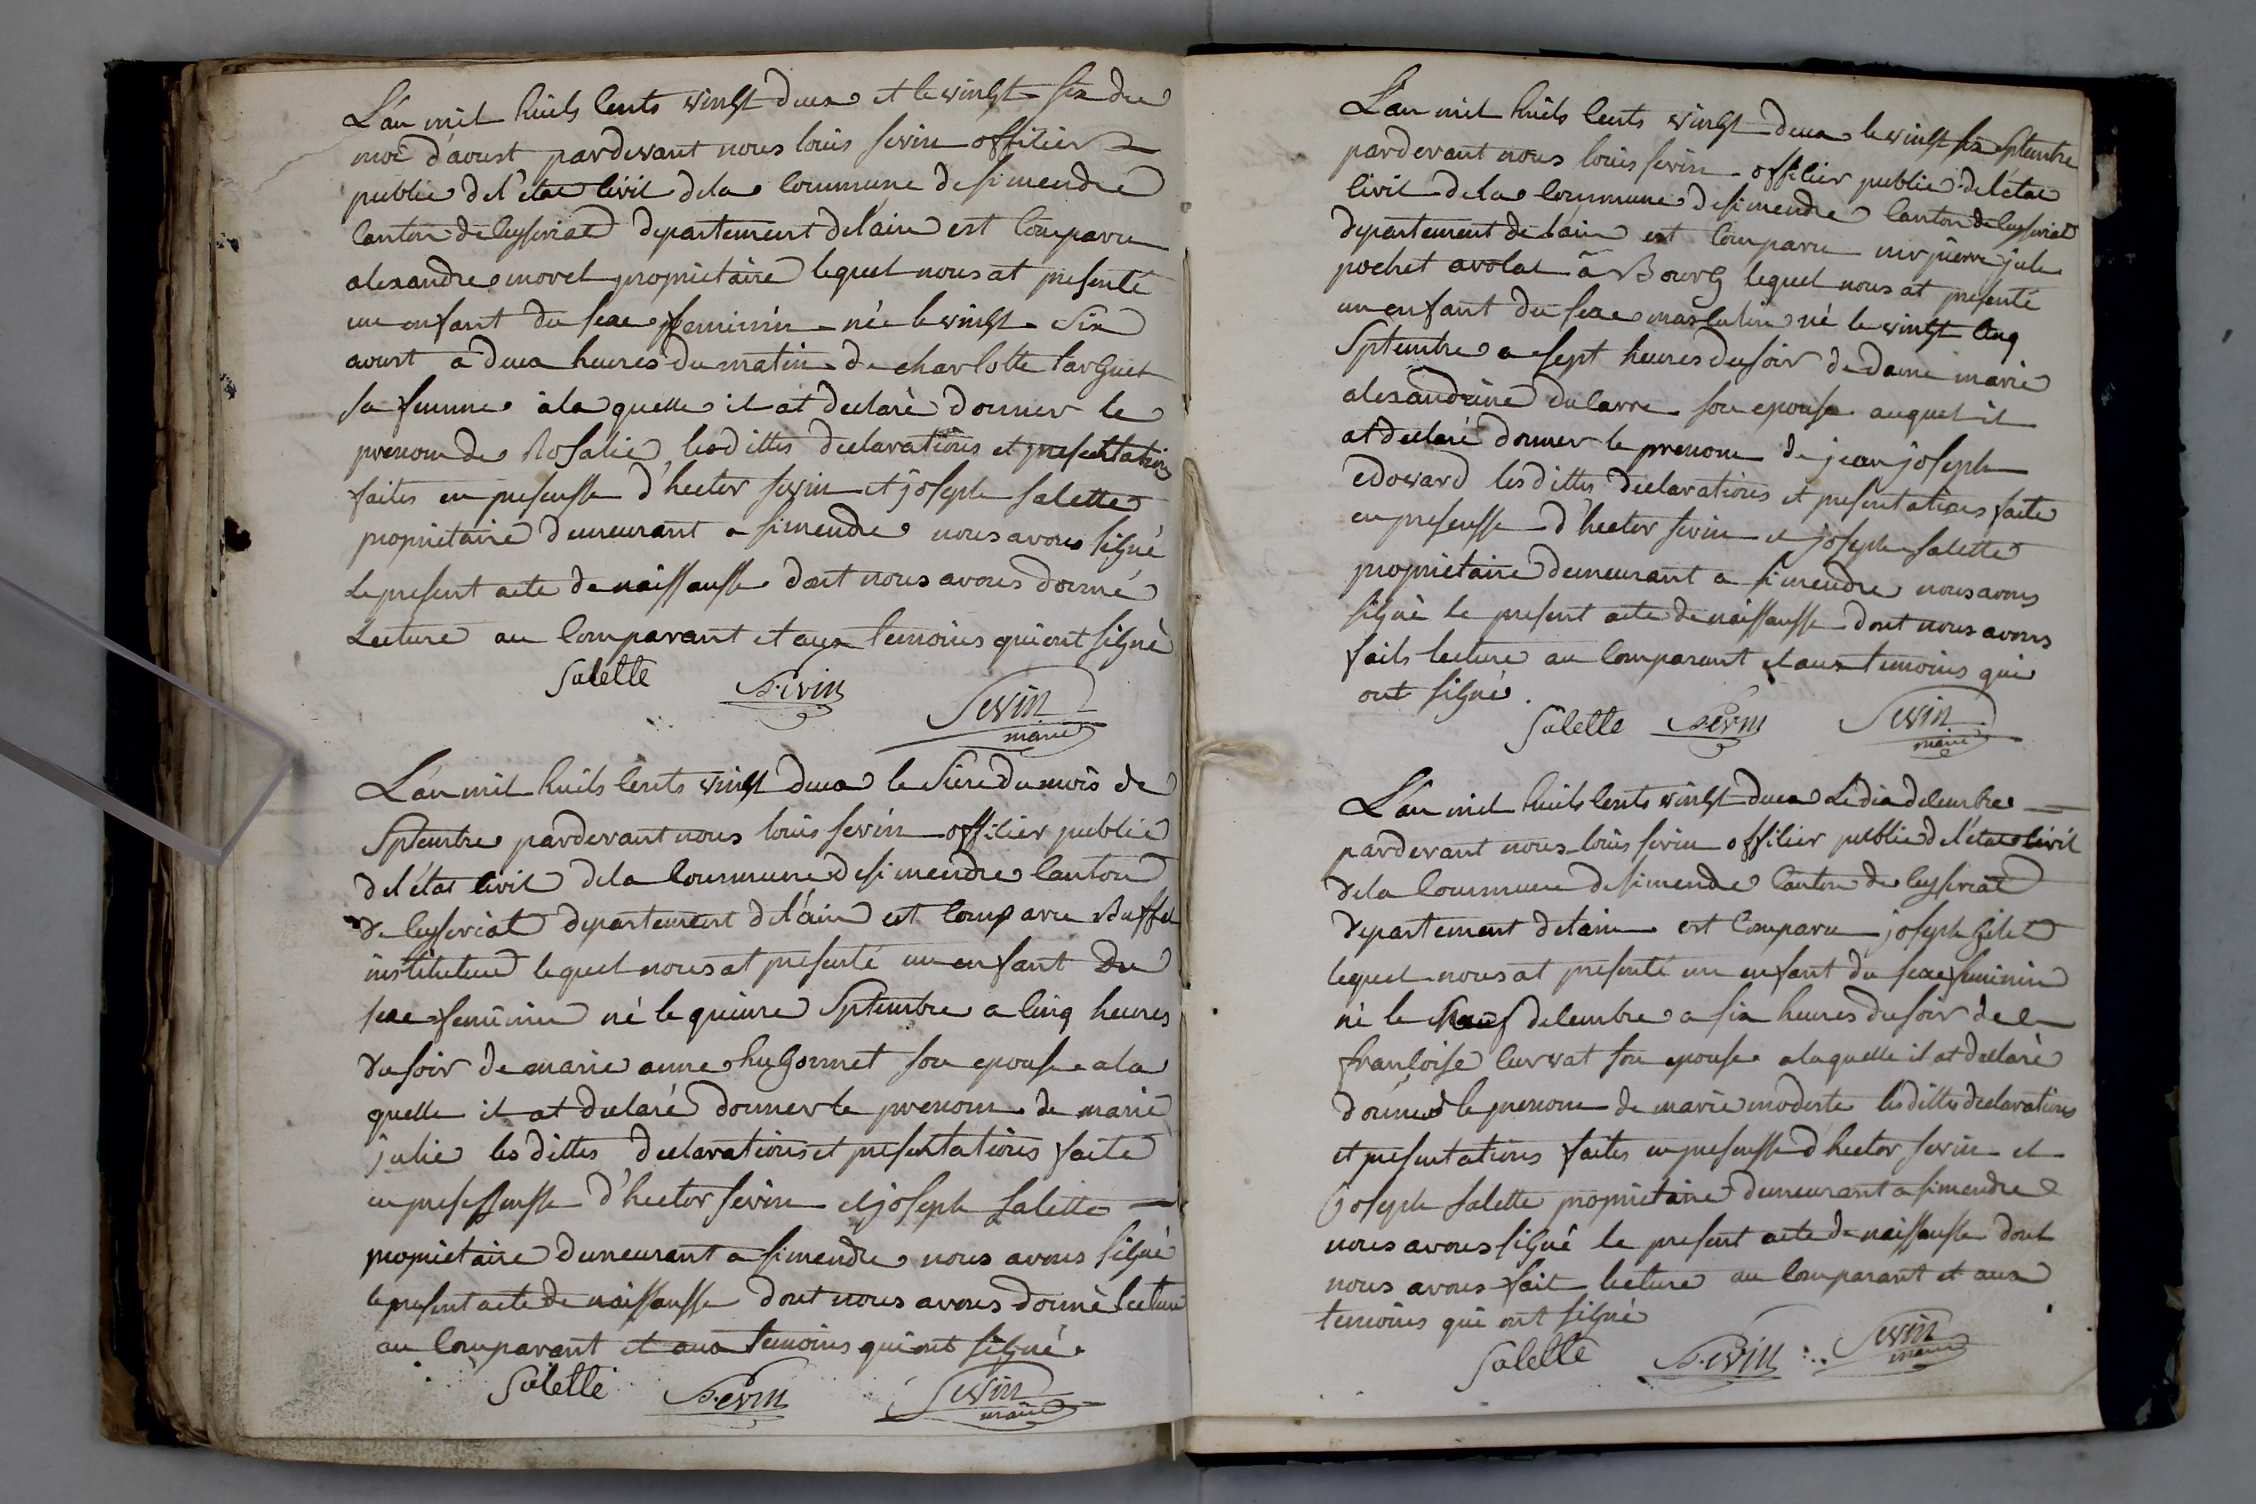 L'an mil huits cents vingt deux et le vingt six du
moi d'aoust pardevant nous louis sevin officier
public de l'etat civil de la commune de simendre
canton de ceyseriat departement de l'ain est comparu
alexandre morel proprietaire lequel nous at presenté
un enfant du sexe feminin née le vingt six
aoust a deux heures du matin de charlotte farguet
sa femme à la quelle il at declaré donner le
prenom de Rosalie, lesdittes declarations et presentations
faites en presensse d'hector sevin et joseph salette
proprietaire demeurant a simendre nous avons signé
le present acte de naissansse dont nous avons donné
lecture au comparant et aux temoins qui ont signé
Salette Sevin Sevin
maire
L'an mil huits cents vingt deux le seize du mois de
Septembre pardevant nous louis sevin officier public
de l'état civil de la commune de simendre canton
de ceyseriat departement de l'ain est comparu Buffet
instituteur lequel nous at presenté un enfant du
sexe feminin né le quinze Septembre a cinq heures
du soir de marie anne hugonnet son epouse a la
quelle il at declaré donner le prenom de marie
julie lesdittes declarations et presentations faite
en presessensse d'hector sevin et joseph Salette
proprietaire demeurant a simendre nous avons signé
le present acte de naissansse dont nous avons donné lecture
au comparant et aux temoins qui ont signé.
Salette Sevin Sevin
maire
L'an mil huits cents vingt deux le vingt six septembre
pardevant nous louis sevin officier public de l'état
civil de la commune de simendre canton de ceyseriat
departement de l'ain est comparu mr pierre jule
pochet avocat à Bourg lequel nous at presenté
un enfant du sexe masculin né le vingt cinq
Septembre a sept heures du soir de dame marie
alexandrine dulavre son epouse auquel il
at declaré donner le prenom de jean joseph
edovard lesdittes declarations et presentations faite
en presensse d'hector sevin et joseph Salette
proprietaire demeurant a simendre nous avons
signé le present acte de naissansse dont nous avons
faits lecture au comparant et aux temoins qui
ont signé.
Salette Sevin Sevin
maire
L'an mil huits cents vingt deux Le dix decembre
pardevant nous louis sevin officier public de l'état civil
de la commune de simendre canton de ceyseriat
departement de l'ain est comparu joseph gilet
lequel nous at presenté un enfant du sexe feminin
né le neuf decembre a six heures du soir de
françoise curvat son epouse a laquelle il at declaré
donner le prenom de marie modeste lesdittes declarations
et presentations faites en presensse d'hector sevin et
joseph Salette proprietaire demeurant a simendre
nous avons signé le present acte de naissansse dont
nous avons fait lecture au comparant et aux
temoins qui ont signé
Salette Sevin Sevin
maire